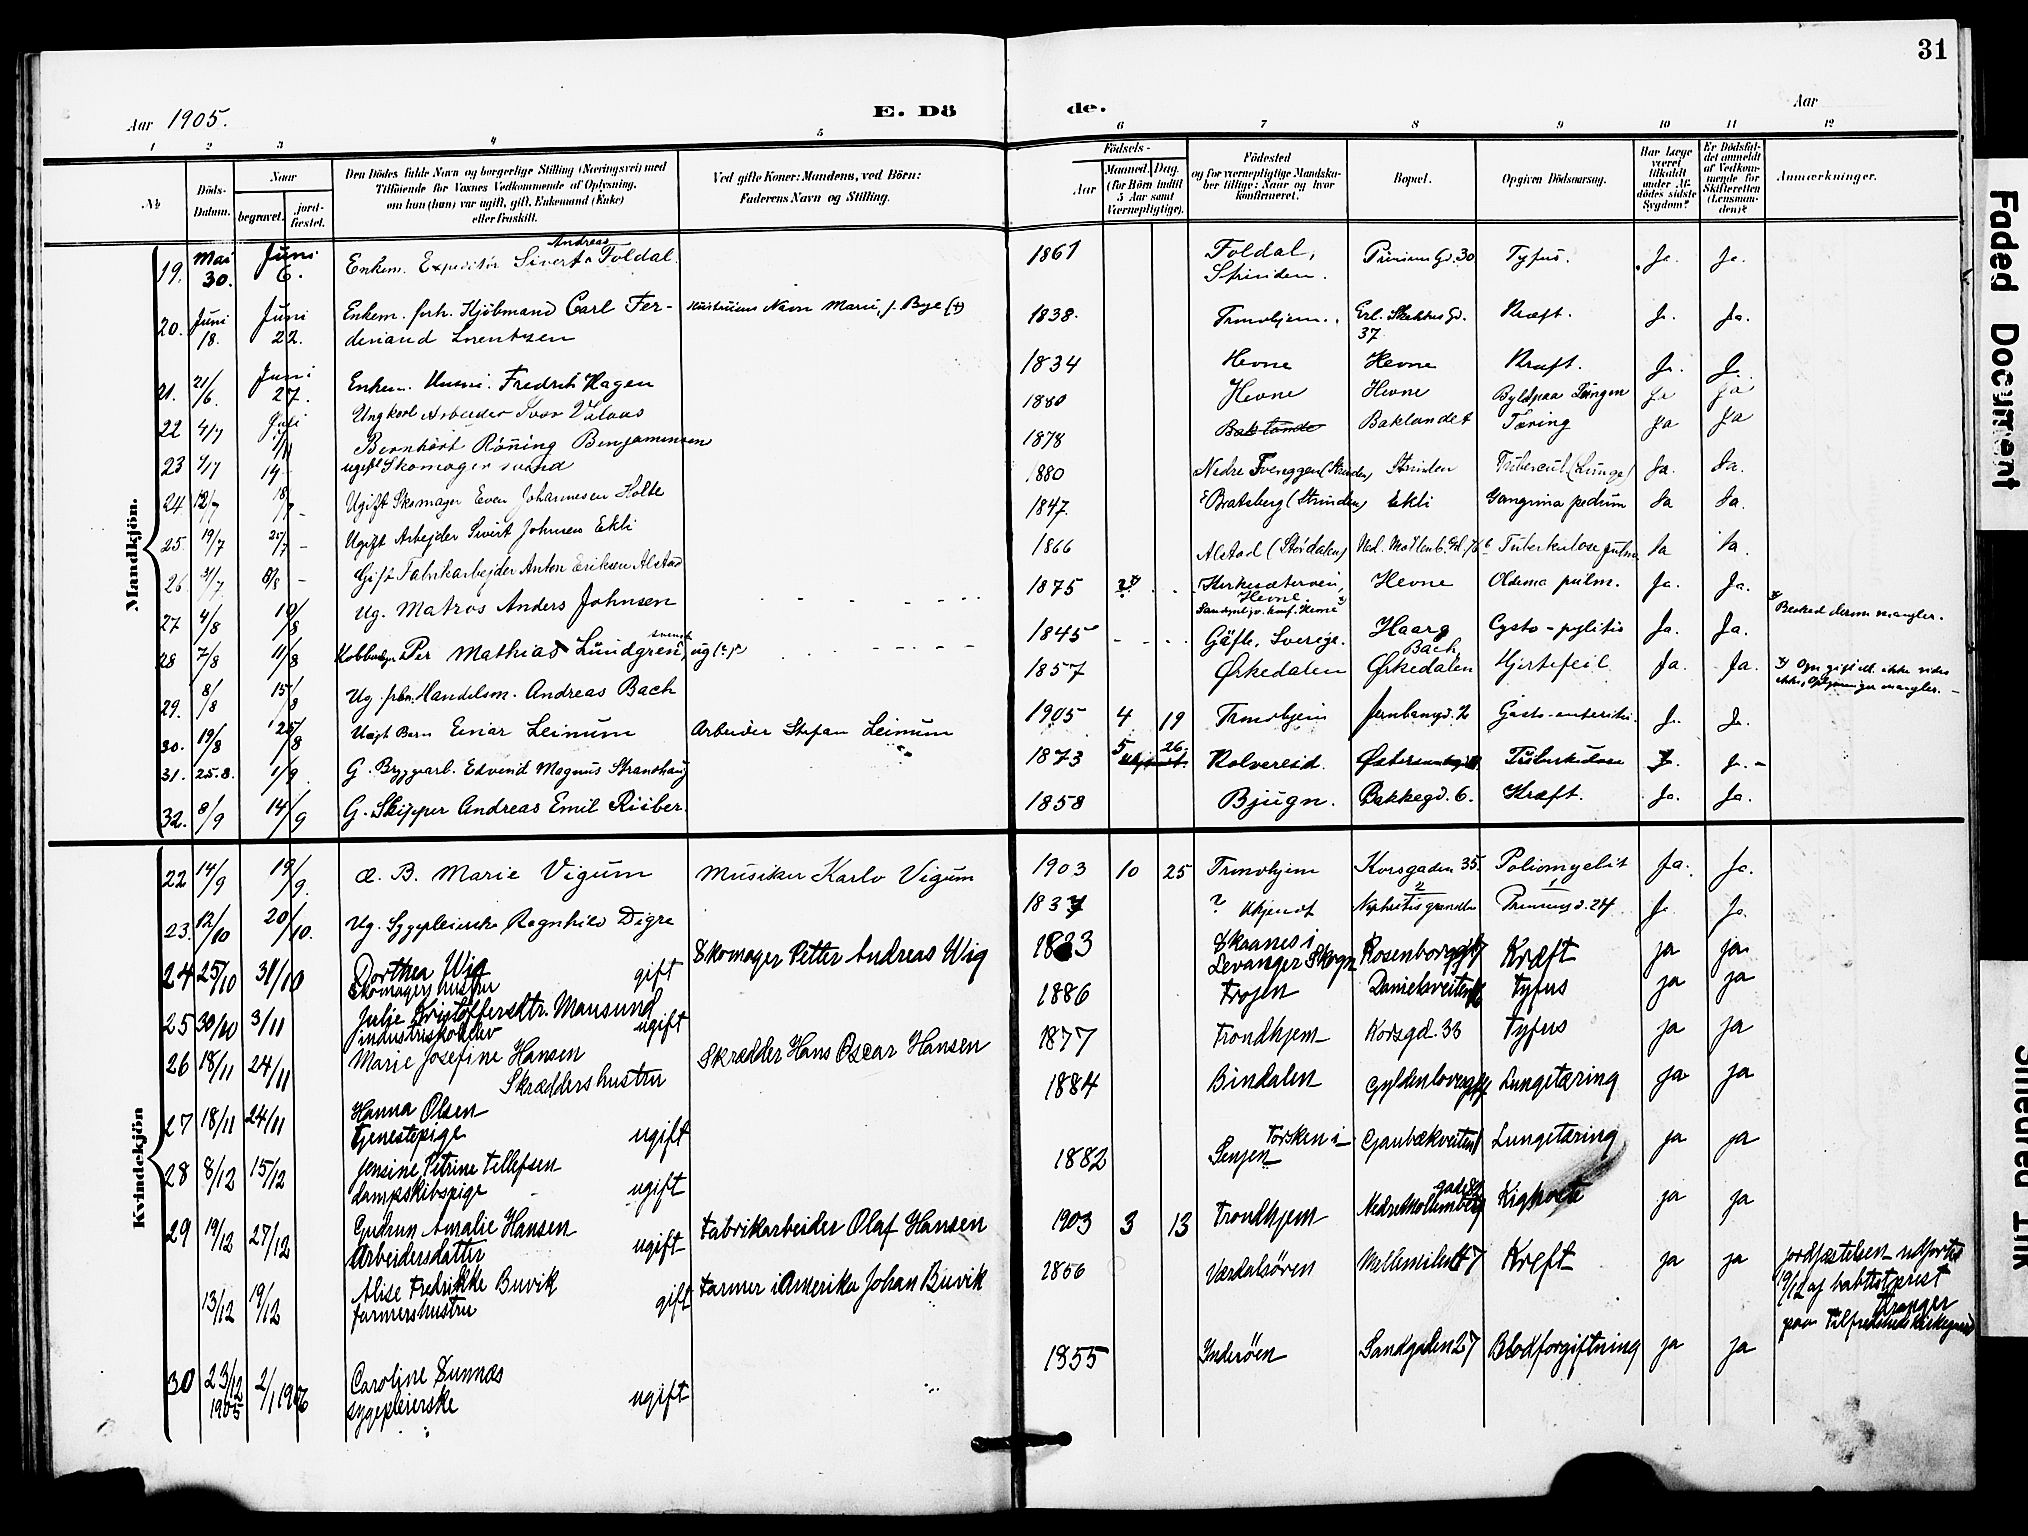 31
Aar 1905.
E. Dö
de.
Aar
1 2 3 4 5 6 7 8 9 10 11 12
№
Döds-Datum.
Naar
begravet.
jord-fæstet.
Den Dödes fulde Navn og borgerlige Stilling (Næringsvei) med
Tilföiende for Voxnes Vedkommende af Oplysning,
om han (hun) var ugift, gift, Enkemand (Enke)
eller fraskilt.
Ved gifte Koner: Mandens, ved Börn:
Faderens Navn og Stilling.
Födsels-
Aar
Maaned. Dag.
(for Börn indtil
5 Aar samt
Værnepligtige).
Födested
og for værnepligtige Mandska-
ber tillige: Naar og hvor
konfirmeret.
Bopæl.
Opgiven Dödsaarsag.
Har Læge
været
tilkaldt
under Af-
dödes sidste
Sygdom?
Er Dödsfal-
det anmeldt
af Vedkom-
mende for
Skifteretten
(Lensman-
den)?
Anmærkninger.
Mandkjön.
19. Mai 30. Juni 6. Enkem. Expeditör Sivert Andreas Foldal. 1861 Foldal, Strinden. Gd. 30 Tyfus. Ja. Ja.
20. Juni 18. Juni 22. Enkem. forh. Kjöbmand Carl Fer-
dinand Lorentzen Hustruens Navn Marie, f. Bye (+) 1838. Trondhjem. Gd. 37 Kræft. Ja. Ja.
21. 21/6. Juni 27. Enkem. Fredrik Hagen 1834 Hevne Hevne Kræft. Ja. Ja.
22 4/7 Juli Ungkarl Arbeider Ivar 1880 Hevne Hevne Byld paa Lungen Ja Ja
23 7/7 14 Bernhart Röning Benjaminsen
ugift Skomagersvend 1878 Baklandet Tæring Ja Ja
24 12/7 18/7 Ugift Skomager Even Johannesen Holte 1880 Nedre (Strinden) Strinden Tubercul (Lunge) Ja. Ja.
25. 19/7 25/7 – Ugift Arbejder Sivert Johnsen Ekli 1847. Bratsberg (Strinden) Ekli Gangræna pedum Ja Ja.
26. 31/7 8/8 – Gift Fabrikarbejder Anton Eriksen Alstad 1866 Alstad (Stördalen) Ned. Tuberkulose pulm. Ja Ja.
27 4/8 10/8 Ug. Matros Anders Johnsen 1875 Hevne. Hevne Oldema pulm. Ja. Ja. Besked derom mangler.
28 7/8 11/8 Per Mathias Lundgren, svensk ug (?) 1845 Gäfle, Sverige. Haarg Cysto-pylitis Ja. Ja.
29. 8/8 15/8 Ug. Handelsm. Andreas Bach 1857 Ørkedalen Bach, Ørkedalen Hjertefeil Ja. Ja. Om gift ell. ikke vides
ikke, Oplysninger mangler. –
30. 19/8 25/8 Uægt Barn Einar Leinum Arbeider Stefan Leinum 1905 4 19 Trondhjem Jernbanegd. 2 Gastro-enteritis. Ja. Ja.
31. 25.8. 1/9. G. Bryggarb. Edvend Magnus Strandhaug 1873 5 26. Kolvereid. Tuberkulose J. J. –
32. 8/9 14/9 G. Skipper Andreas Emil Risber. 1858 Bjugn. Bakkegd. 6. Kræft. Ja. Ja.
Kvindekjön
22 14/9 19/9. æ. B. Marie Vigum Musiker Karlo Vigum 1903 10 25 Trondhjem Korsgaden 35. Poliomyelit Ja. Ja.
23. 12/10 20/10. Ug. Sygepleierske Ragnhild Digre 1837 ? Ukjendt Ja. Ja.
24 25/10 31/10 Dorthea Wig
Skomagershustru gift Skomager Petter Andreas Wig 1823 Skaanes i
Levanger Skogn Kræft ja ja
25 30/10 3/11 Julie Kristoffersdtr. Mausund
industriskoleelev ugift 1886 Frojen Danielsveiten Tyfus ja ja
26 18/11 24/11 Marie Josefine Hansen
Skræddershustru Skrædder Hans Oscar Hansen 1877 Trondhjem Korsgd. 33 Tyfus ja ja
27 18/11 24/11 Hanna Olsen
Tjenestepige ugift 1884 Bindalen Lungetæring ja ja
28 8/12 15/12 Jensine Petrine Tellefsen
dampskibspige ugift 1882 Torsken i
Senjen Gaubækveiten Lungetæring ja ja
29 19/12 27/12 Gudrun Amalie Hansen
Arbeidersdatter ugift Fabrikarbeider Olaf Hansen 1903 3 13 Trondhjem Kighoste ja ja
13/12 19/12 Alise Fredrikke Buvik
farmershustru gift Farmer i Amerika Johan Buvik 1856 Værdalsören Kreft ja ja jordfæstelsen udfortes
19/12 af babtistprest
paa Tilfredsheds kirkegaard
30 23/12 1905 2/1 1906 Caroline Sunnæs
sygepleierske ugift 1855 Inderöen Sandgaden 27 Blodforgiftning ja ja
Faded Document
Smearred Ink